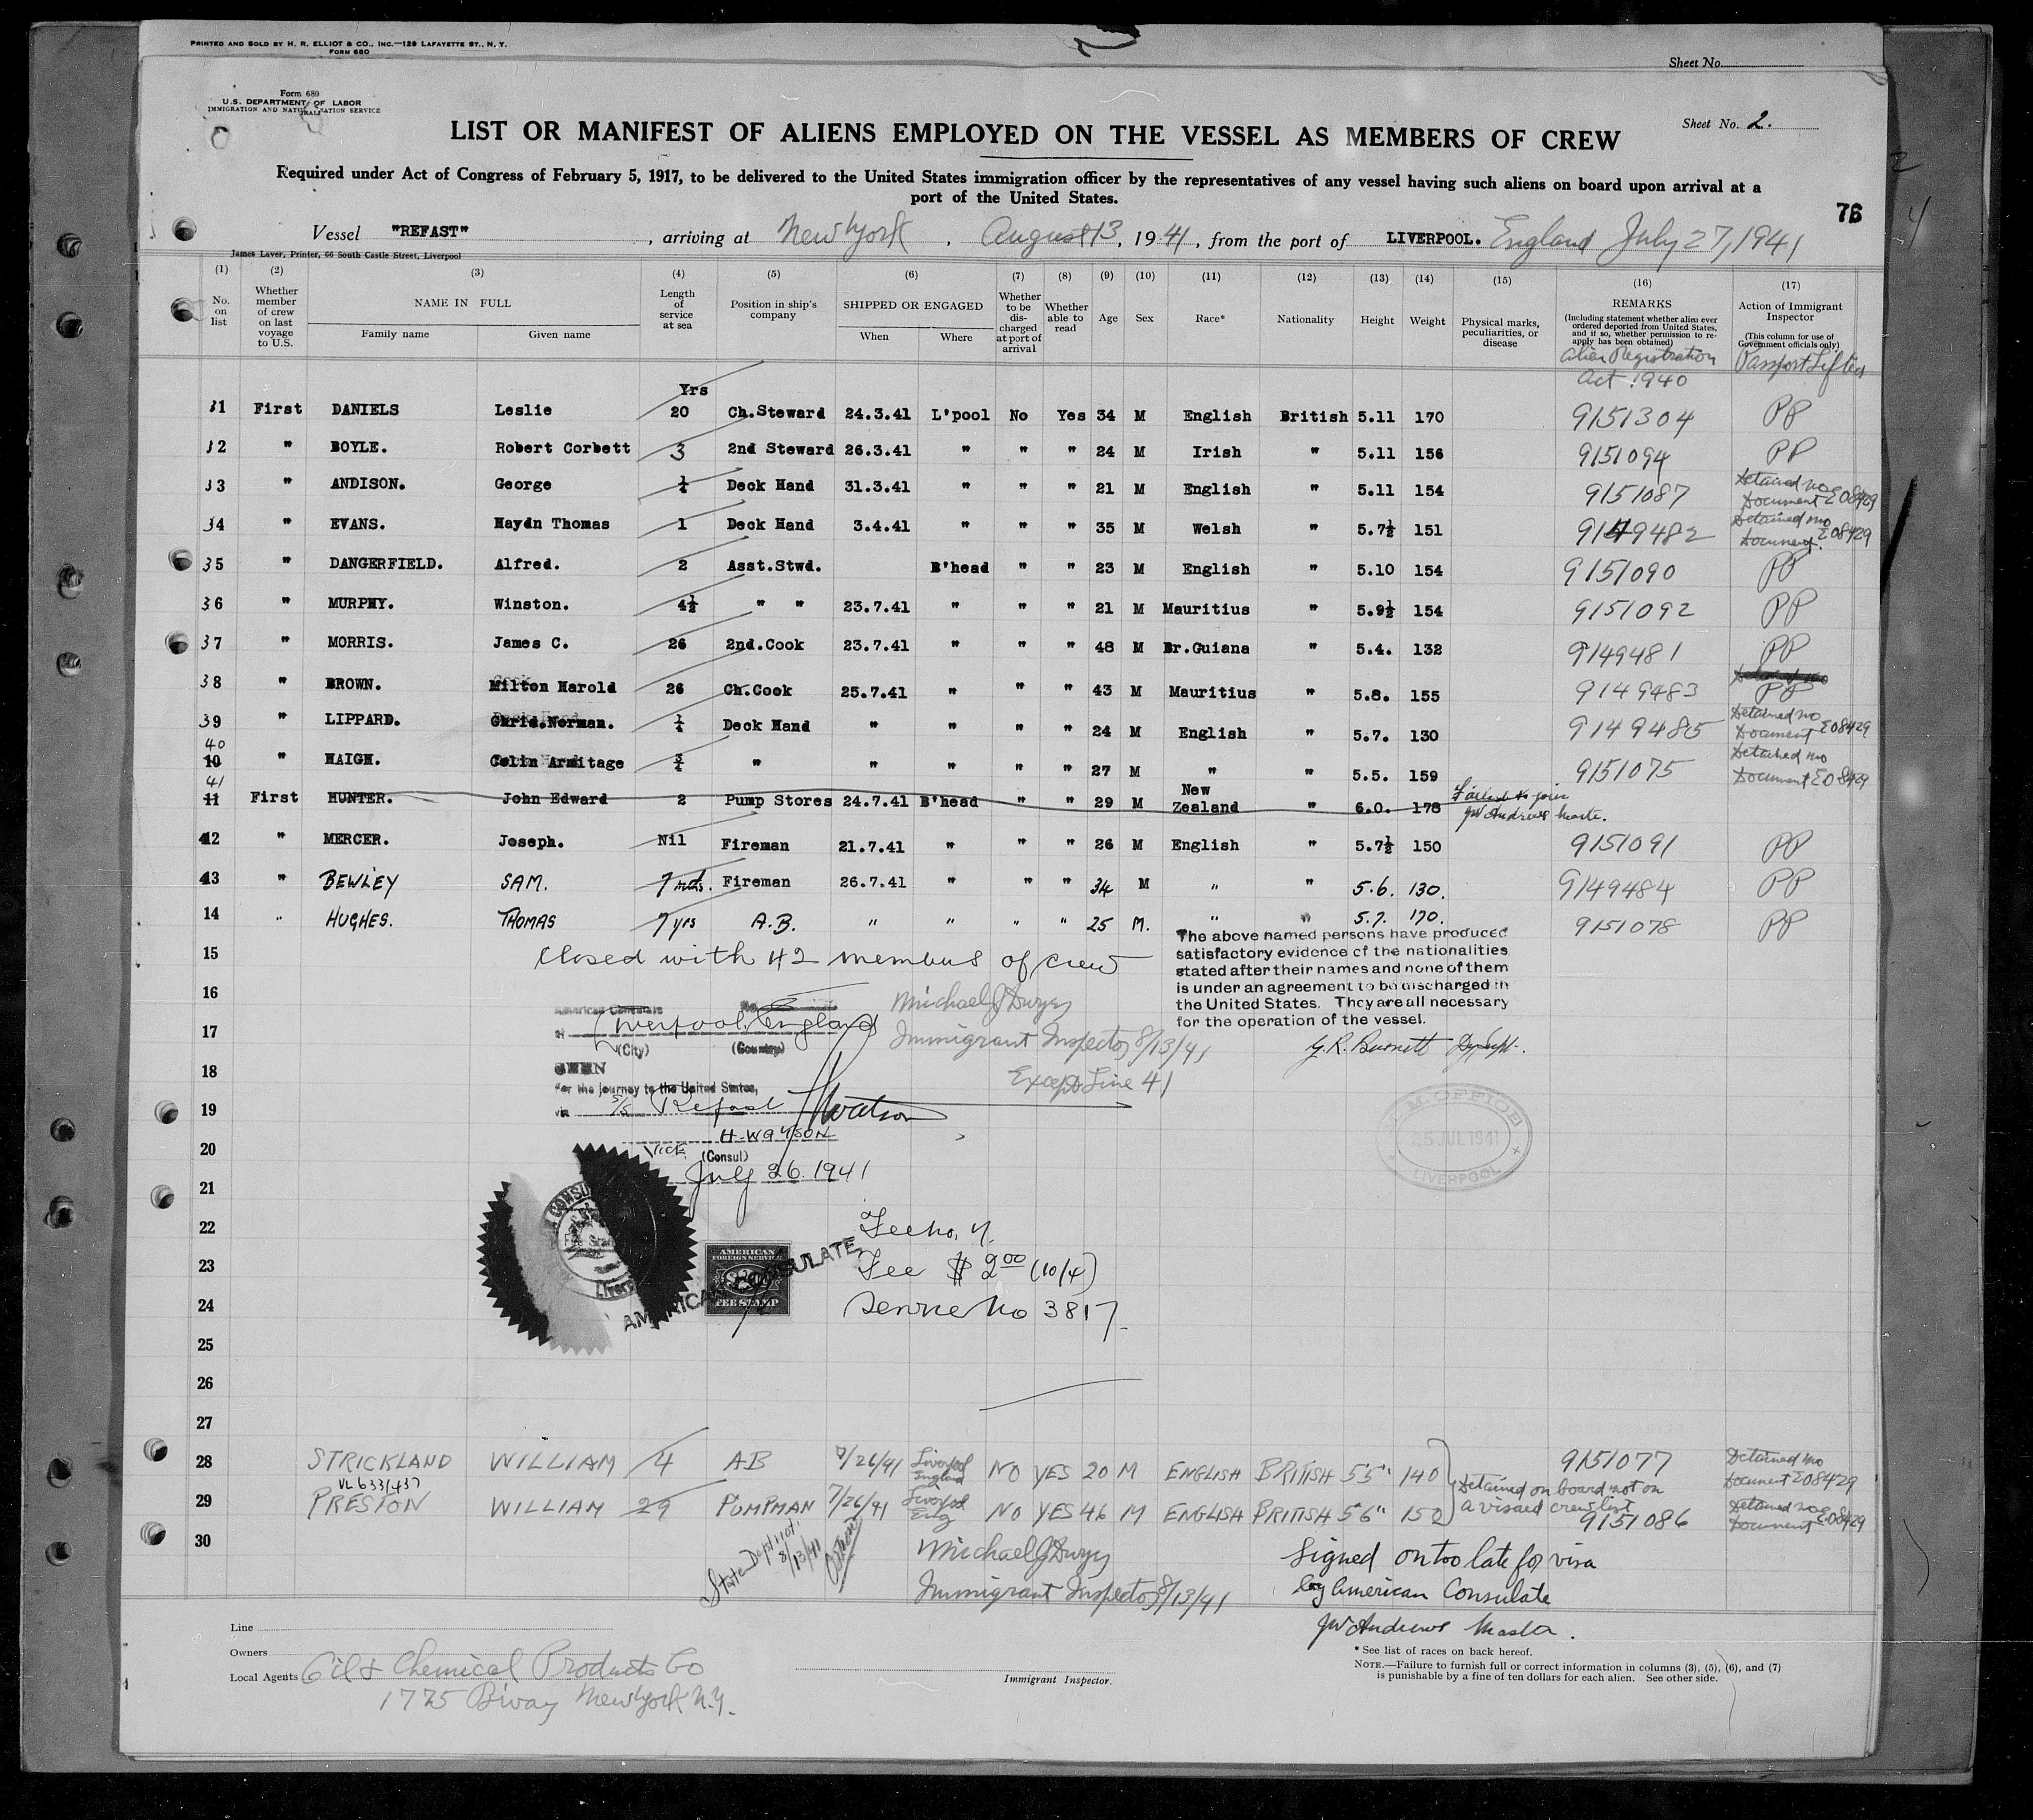 PRINTED AND SOLD BY H. R. ELLIOT & CO., INC.—129 LAFAYETTE ST., N. Y.
FORM 680
Sheet No.
Form 680
U.S. DEPARTMENT OF LABOR
IMMIGRATION AND NATURALISATION SERVICE
Sheet No. 2.
LIST OR MANIFEST OF ALIENS EMPLOYED ON THE VESSEL AS MEMBERS OF CREW
Required under Act of Congress of February 5, 1917, to be delivered to the United States immigration officer by the representatives of any vessel having such aliens on board upon arrival at a
port of the United States.
76
Vessel "REFAST", arriving at New York, August 13, 1941, from the port of LIVERPOOL. England July 27, 1941
James Laver, Printer, 66 South Castle Street, Liverpool
(1) (2) (3) (4) (5) (6) (7) (8) (9) (10) (11) (12) (13) (14) (15) (16) (17)
No. on list
Whether member of crew on last voyage to U.S.
NAME IN FULL
Family name Given name
Length of service at sea
Position in ship's company
SHIPPED OR ENGAGED
When Where
Whether to be discharged at port of arrival
Whether able to read
Age Sex Race* Nationality Height Weight
Physical marks, peculiarities, or disease
REMARKS
(Including statement whether alien ever ordered deported from United States, and if so, whether permission to re-apply has been obtained)
Alien Registration Act 1940
Action of Immigrant Inspector
(This column for use of Government officials only)
Passport Lifted
Yrs
31 First DANIELS Leslie 20 Ch.Steward 24.3.41 L'pool No Yes 34 M English British 5.11 170 9151304 PP
32 " BOYLE. Robert Corbett 3 2nd Steward 26.3.41 " " " 24 M Irish " 5.11 156 9151094 PP
33 " ANDISON. George ¼ Deck Hand 31.3.41 " " " 21 M English " 5.11 154 9151087 Detained no Document E08429
34 " EVANS. Haydn Thomas 1 Deck Hand 3.4.41 " " " 35 M Welsh " 5.7½ 151 9149482 Detained no Document. E08429
35 " DANGERFIELD. Alfred. 2 Asst.Stwd. B'head " " 23 M English " 5.10 154 9151090 PP
36 " MURPHY. Winston. 4½ " " 23.7.41 " " " 21 M Mauritius " 5.9½ 154 9151092 PP
37 " MORRIS. James C. 26 2nd.Cook 23.7.41 " " " 48 M Br.Guiana " 5.4. 132 9149481 PP
38 " BROWN. Milton Harold 26 Ch.Cook 25.7.41 " " " 43 M Mauritius " 5.8. 155 9149483 PP
39 " LIPPARD. Chris.Norman. Deck Hand " " " " 24 M English " 5.7. 130 9149485 Detained no Document E08429
40 10 " HAIGH. Colin Armitage ¾ " " " " " 27 M " " 5.5. 159 9151075 Detained no Document E08429
41 11 First HUNTER. John Edward 2 Pump Stores 24.7.41 B'head " " 29 M New Zealand " 6.0. 178 Failed to join JW Andrews Master.
42 " MERCER. Joseph. Nil Fireman 21.7.41 " " " 26 M English " 5.7½ 150 9151091 PP
43 " BEWLEY SAM. 7 mths. Fireman 26.7.41 " " " 34 M " " 5.6. 130. 9149484 PP
14 " HUGHES. THOMAS 7 yrs A.B. " " " " 25 M. " " 5.7. 170. 9151078 PP
15 Closed with 42 members of crew
The above named persons have produced
satisfactory evidence of the nationalities
stated after their names and none of them
is under an agreement to be discharged in
the United States. They are all necessary
for the operation of the vessel.
G. R. Burnett
16 American Consulate Michael J Dwyer
17 at Liverpool, England Immigrant Inspector 8/13/41
(City) (Country)
SEEN
18 Except Line 41
For the journey to the United States,
19 via S/S Refast HWatson
H. WATSON
20 VICE (Consul)
July 26. 1941
I.M. OFFICE
JUL 1941
LIVERPOOL
21
22 Fee No. 4.
AMERICAN CONSULATE
AMERICAN FOREIGN SERVICE
FEE STAMP
23 Fee $2.00 (10/4)
24 Service No 3817
25
26
27
28 STRICKLAND WILLIAM 4 AB 7/26/41 Liverpool England NO YES 20 M ENGLISH BRITISH 5'5" 140 9151077 Detained no Document E08429
VL 633/437
Detained on board not on a visaed crew list
29 PRESTON WILLIAM 29 PUMPMAN 7/26/41 Liverpool Eng NO YES 46 M ENGLISH BRITISH 5'6" 150 9151086 Detained no Document E08429
State Dept not. 8/13/41
30 Michael J Dwyer
Immigrant Inspector 8/13/41
Signed on too late for visa
by American Consulate
JW Andrews Master.
Line
Owners
Local Agents Oil & Chemical Products Co
1775 Bway New York N.Y.
Immigrant Inspector.
* See list of races on back hereof.
NOTE.—Failure to furnish full or correct information in columns (3), (5), (6), and (7)
is punishable by a fine of ten dollars for each alien. See other side.